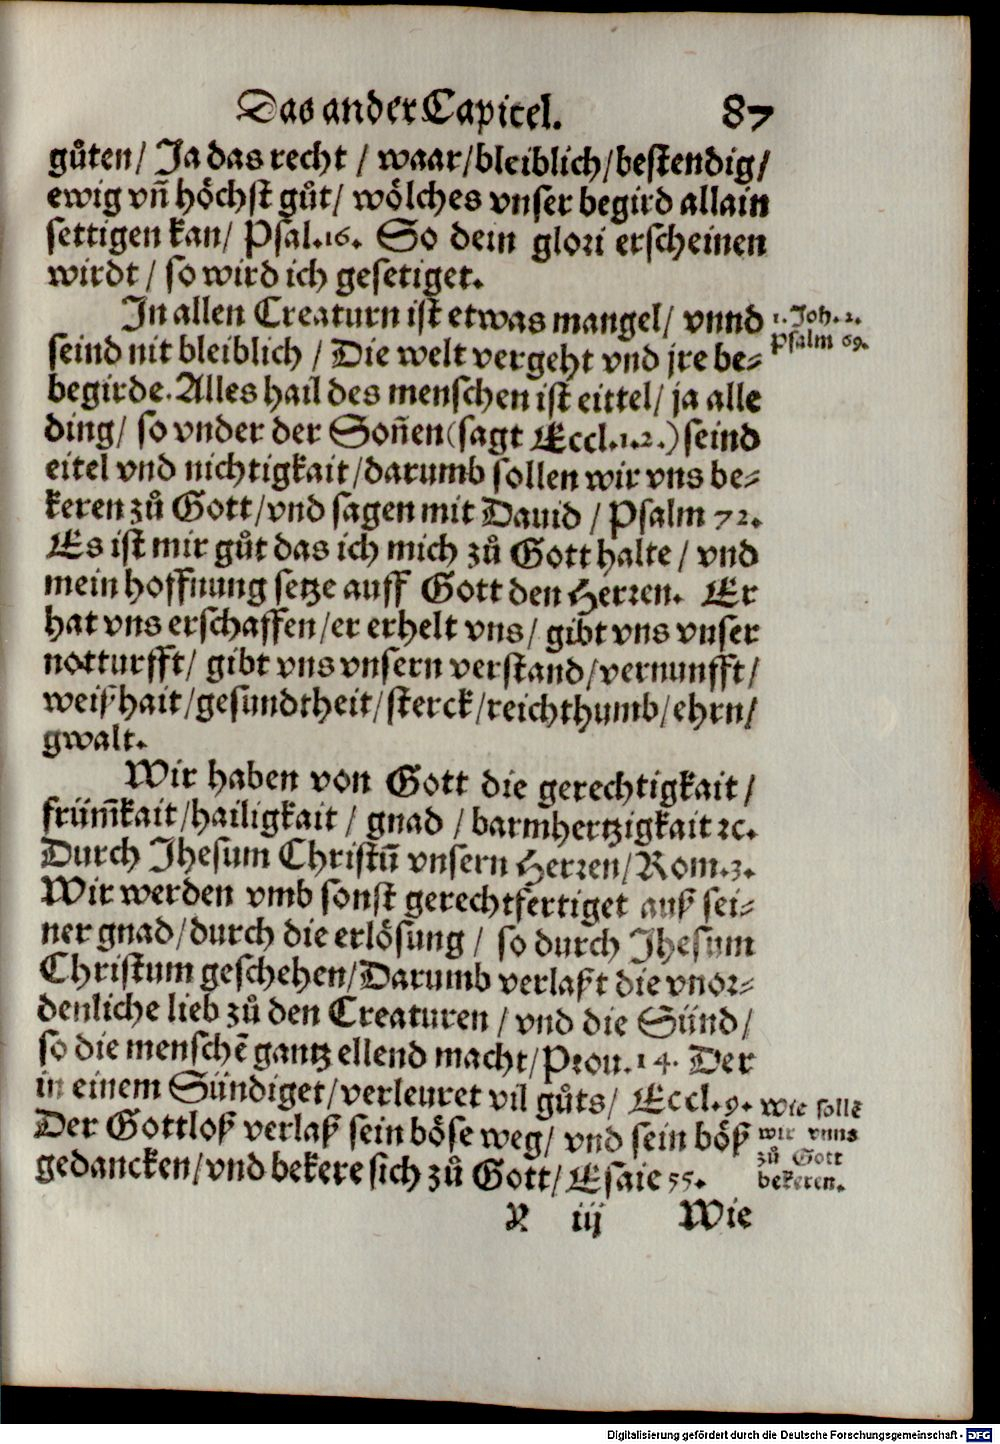 Das ander Capitel. 87
gůten/ Ja das recht / waar/bleiblich/bestendig/
ewig vñ höchst gůt/ wölches vnser begird allain
settigen kan/ Psal.16. So dein glori erscheinen
wirdt / so wird ich gesetiget.
In allen Creaturn ist etwas mangel/ vnnd
1. Joh. 2.
seind nit bleiblich / Die welt vergeht vnd jre be-
Psalm 69.
begirde. Alles hail des menschen ist eittel/ ja alle
ding/ so vnder der Soñen (sagt Eccl.1.2.) seind
eitel vnd nichtigkait/darumb sollen wir vns be-
keren zů Gott/vnd sagen mit Dauid / Psalm 72.
Es ist mir gůt das ich mich zů Gott halte / vnd
mein hoffnung setze auff Gott den Herren. Er
hat vns erschaffen/er erhelt vns/ gibt vns vnser
notturfft/ gibt vns vnsern verstand/vernunfft/
weißhait/gesundtheit/sterck/reichthumb/ehrn/
gwalt.
Wir haben von Gott die gerechtigkait/
früm̃kait/hailigkait / gnad / barmhertzigkait ꝛc.
Durch Jhesum Christũ vnsern Herren/Rom.3.
Wir werden vmb sonst gerechtfertiget auß sei-
ner gnad/durch die erlösung / so durch Jhesum
Christum geschehen/Darumb verlaßt die vnor-
denliche lieb zů den Creaturen / vnd die Sünd/
so die menschẽ gantz ellend macht/Prou.14. Der
in einem Sündiget/verleuret vil gůts/ Eccl.9.
Wie sollẽ
Der Gottloß verlaß sein böse weg/ vnd sein böß
wir vnns
gedancken/vnd bekere sich zů Gott/Esaie 55.
zů Gott
bekeren.
Y iij Wie
Digitalisierung gefördert durch die Deutsche Forschungsgemeinschaft - DFG